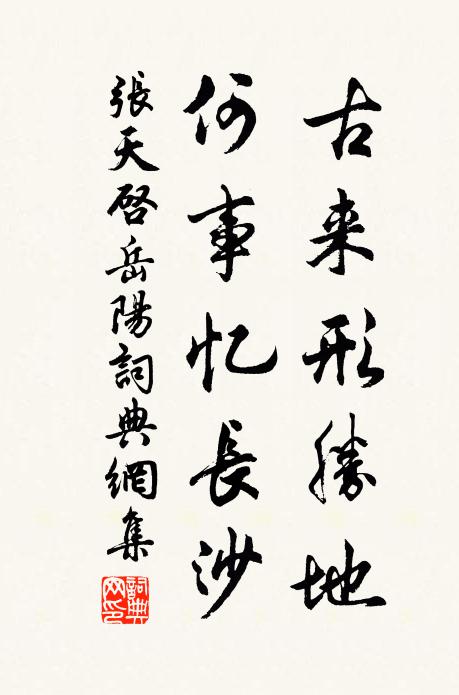 古来形勝地
何事忆長沙
張天啓岳陽詞典網集
詞典
网印